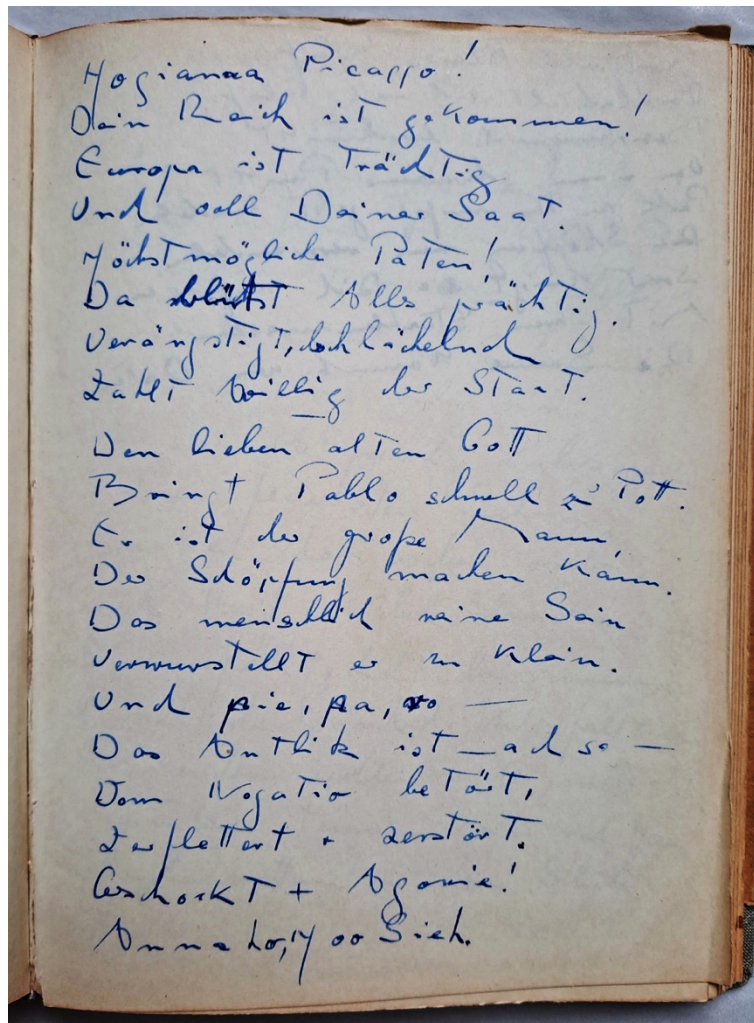 Hosianna Picasso!
Dein Reich ist gekommen!
Europa ist trächtig
Und voll Deiner Saat.
Höchstmögliche Paten!
Da Alles prächtig.
Verängstigt, doch lächelnd
Zahlt willig der Staat.
Den lieben alten Gott
Bringt Pablo schnell z' Pott.
Er ist der große Mann,
Der Schöpfung machen kann.
Das menschlich reine Sein
Verwurstellt er zu klein.
Und pie, pa, —
Das Antlitz ist — ach so —
Vom Negativ betört,
Zerflettert + zerstört.
Geschockt + Agonie!